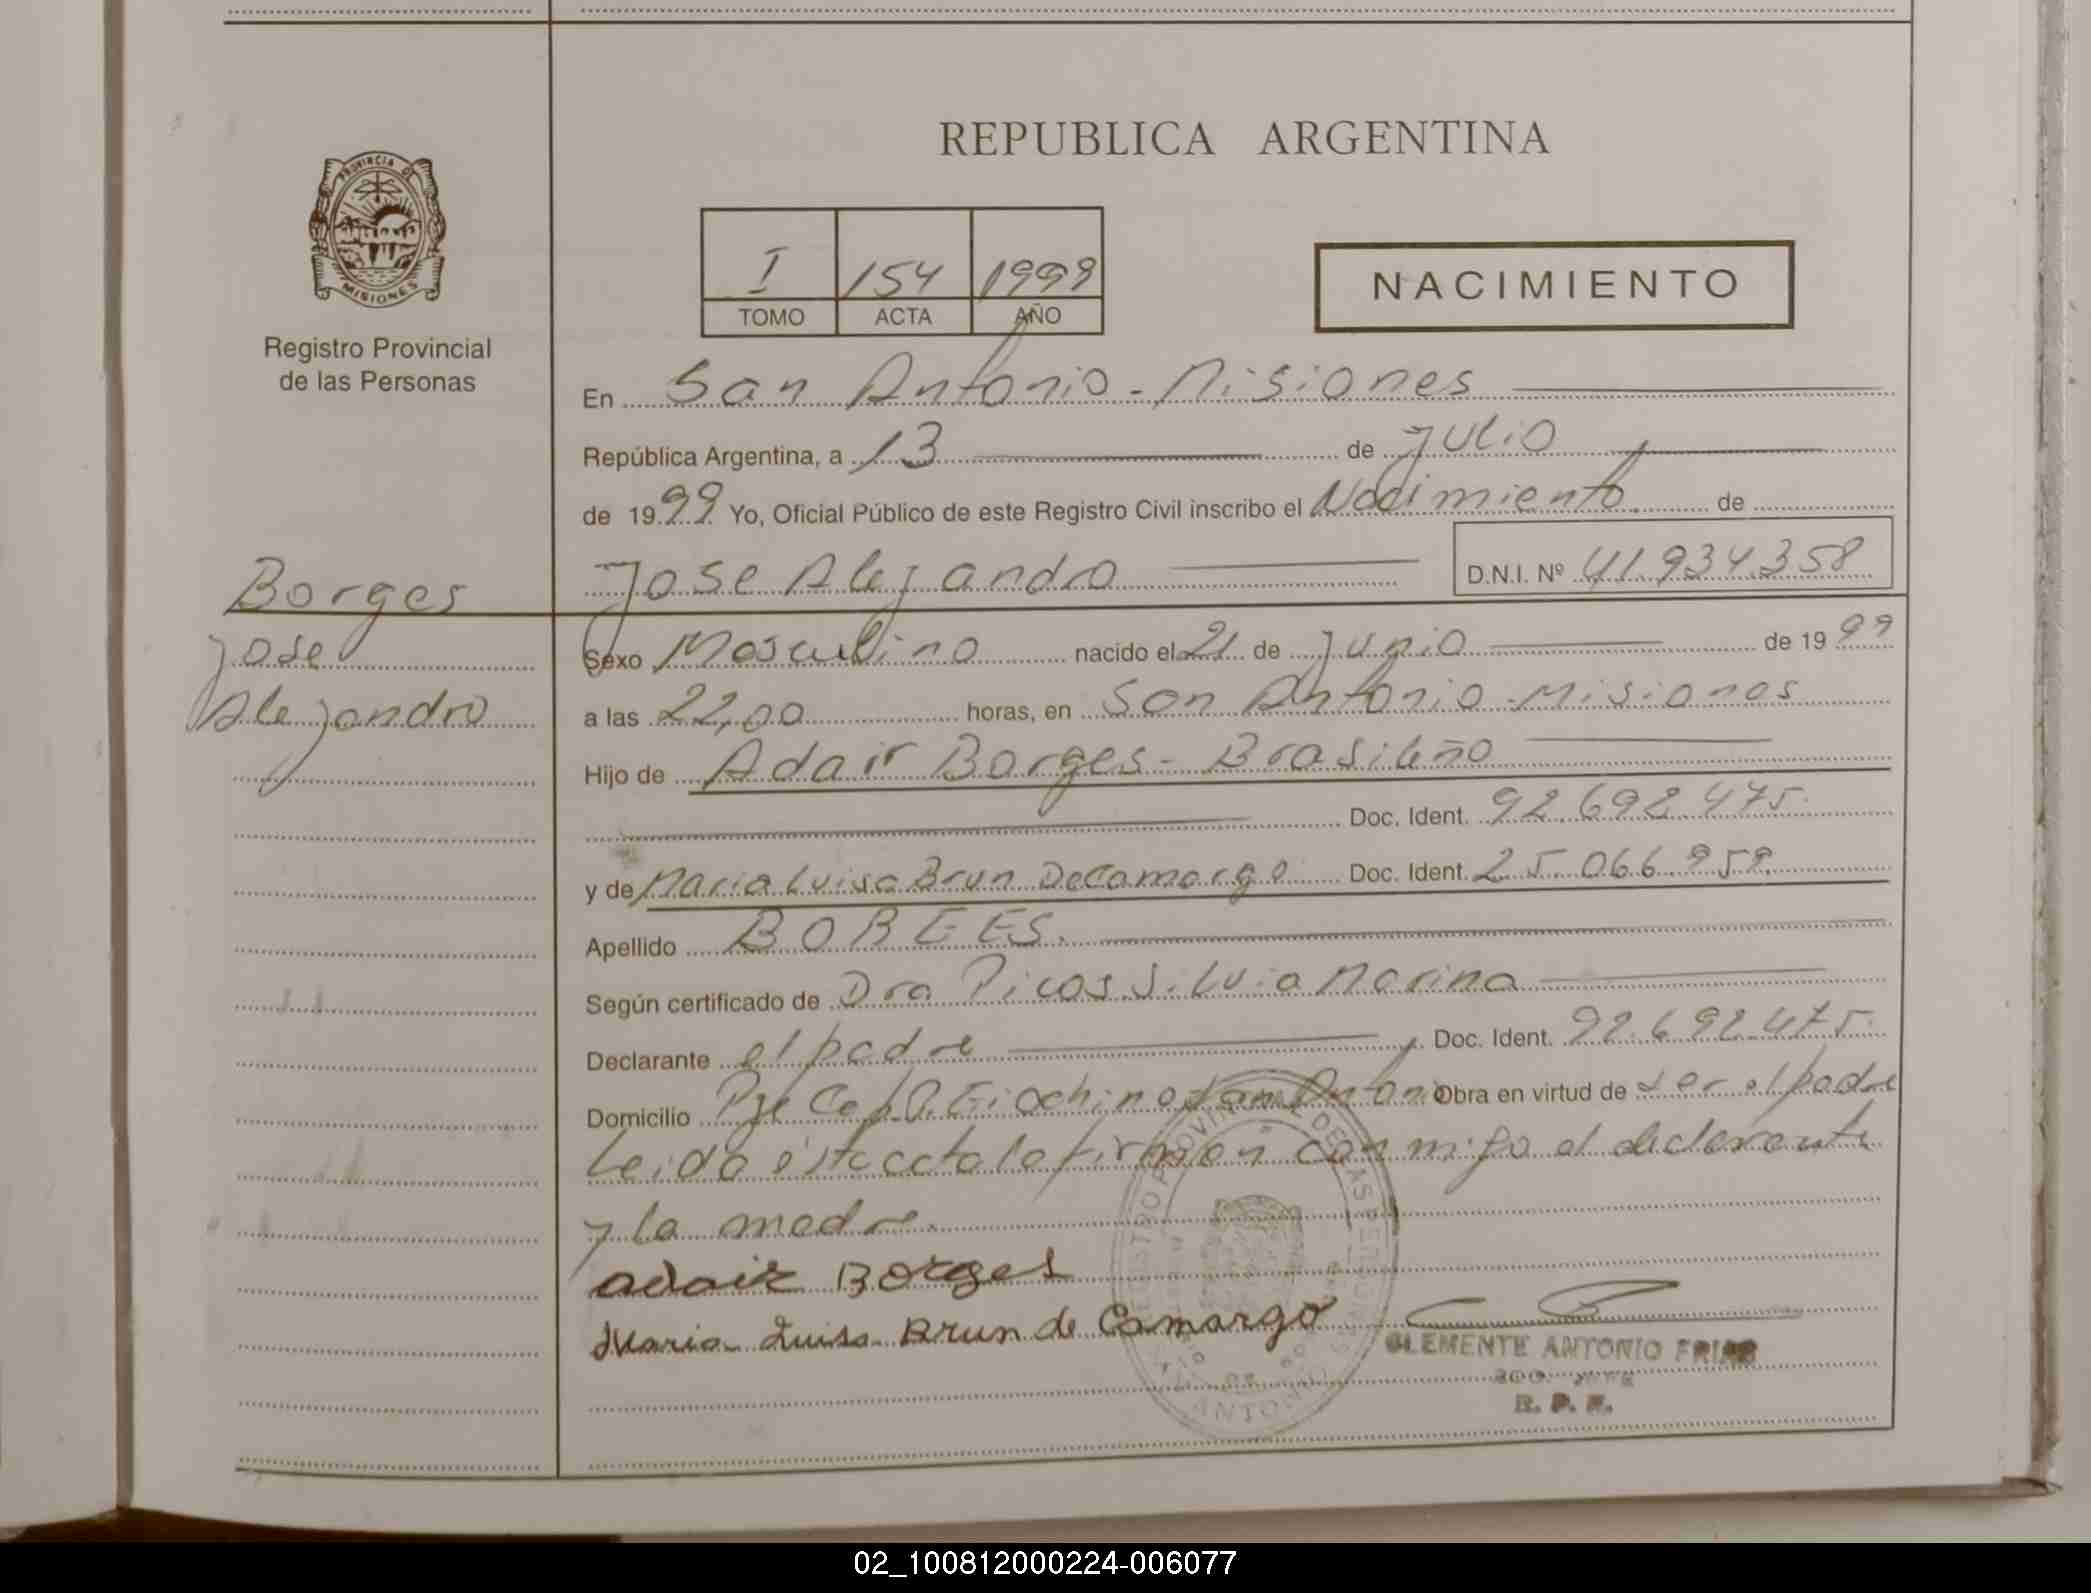 REPUBLICA ARGENTINA
PROVINCIA DE MISIONES
Registro Provincial
de las Personas
I 154 1999
TOMO ACTA AÑO
NACIMIENTO
En San Antonio - Misiones
República Argentina, a 13 de Julio
de 1999 Yo, Oficial Público de este Registro Civil inscribo el Nacimiento de
Jose Alejandro D.N.I. Nº 41.934.358
Borges
Jose
Alejandro
Sexo Masculino nacido el 21 de Junio de 1999
a las 22,00 horas, en San Antonio - Misiones
Hijo de Adair Borges - Brasileño
Doc. Ident. 92.692.475.
y de Maria Luisa Brun De Camargo Doc. Ident. 25.066.959.
Apellido BORGES.
Según certificado de Dra Picos Silvia Marina
Declarante el padre Doc. Ident. 92.692.475.
Domicilio Pje Cabo Giachino San Antonio Obra en virtud de ser el padre
Leida ésta acta la firman conmigo el declarante
y la madre.
Adair Borges
Maria Luisa Brun de Camargo
CLEMENTE ANTONIO FRIAS
R. P. P.
02_100812000224-006077